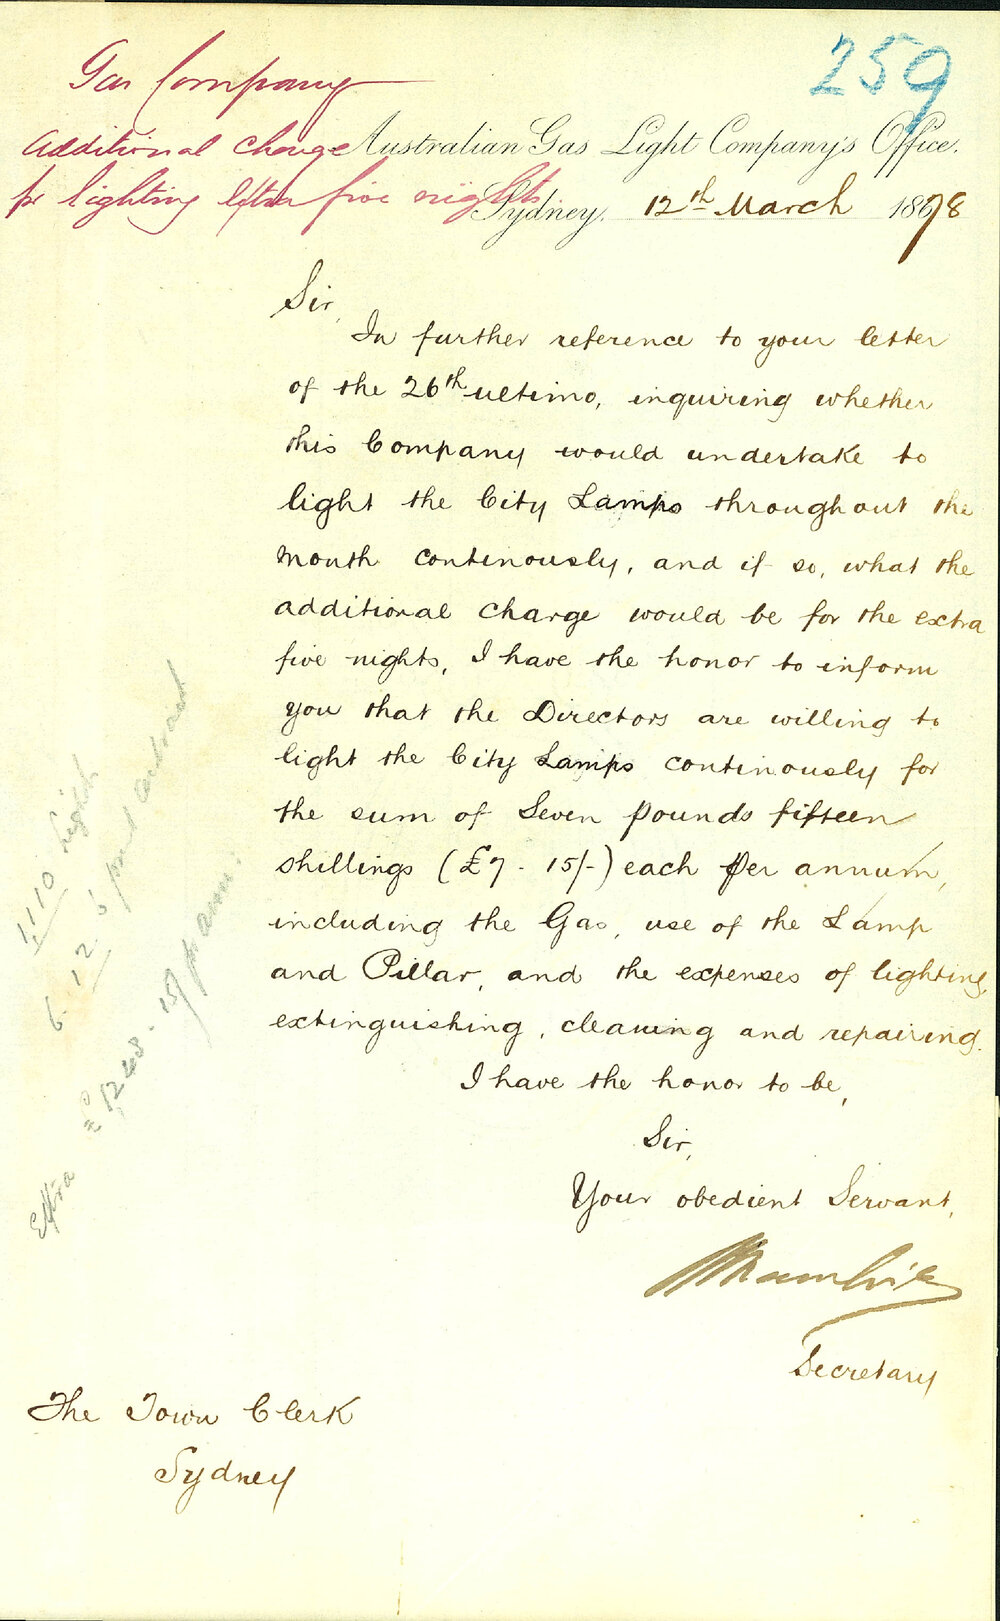 259
Gas Company
Additional charge
for lighting extra five nights
Australian Gas Light Company's Office.
Sydney, 12th March 1878
Sir,
In further reference to your letter
of the 26th ultimo, inquiring whether
this Company would undertake to
light the City Lamps throughout the
Month continously, and if so, what the
additional charge would be for the extra
five nights, I have the honor to inform
you that the Directors are willing to
light the City Lamps continously for
the sum of Seven pounds fifteen
shillings (£7-15/-) each per annum,
including the Gas, use of the Lamp
and Pillar, and the expenses of lighting,
extinguishing, cleaning and repairing.
I have the honor to be,
Sir,
Your obedient Servant,
Secretary
The Town Clerk
Sydney
1110 lights
6.12.6 contract
Extra